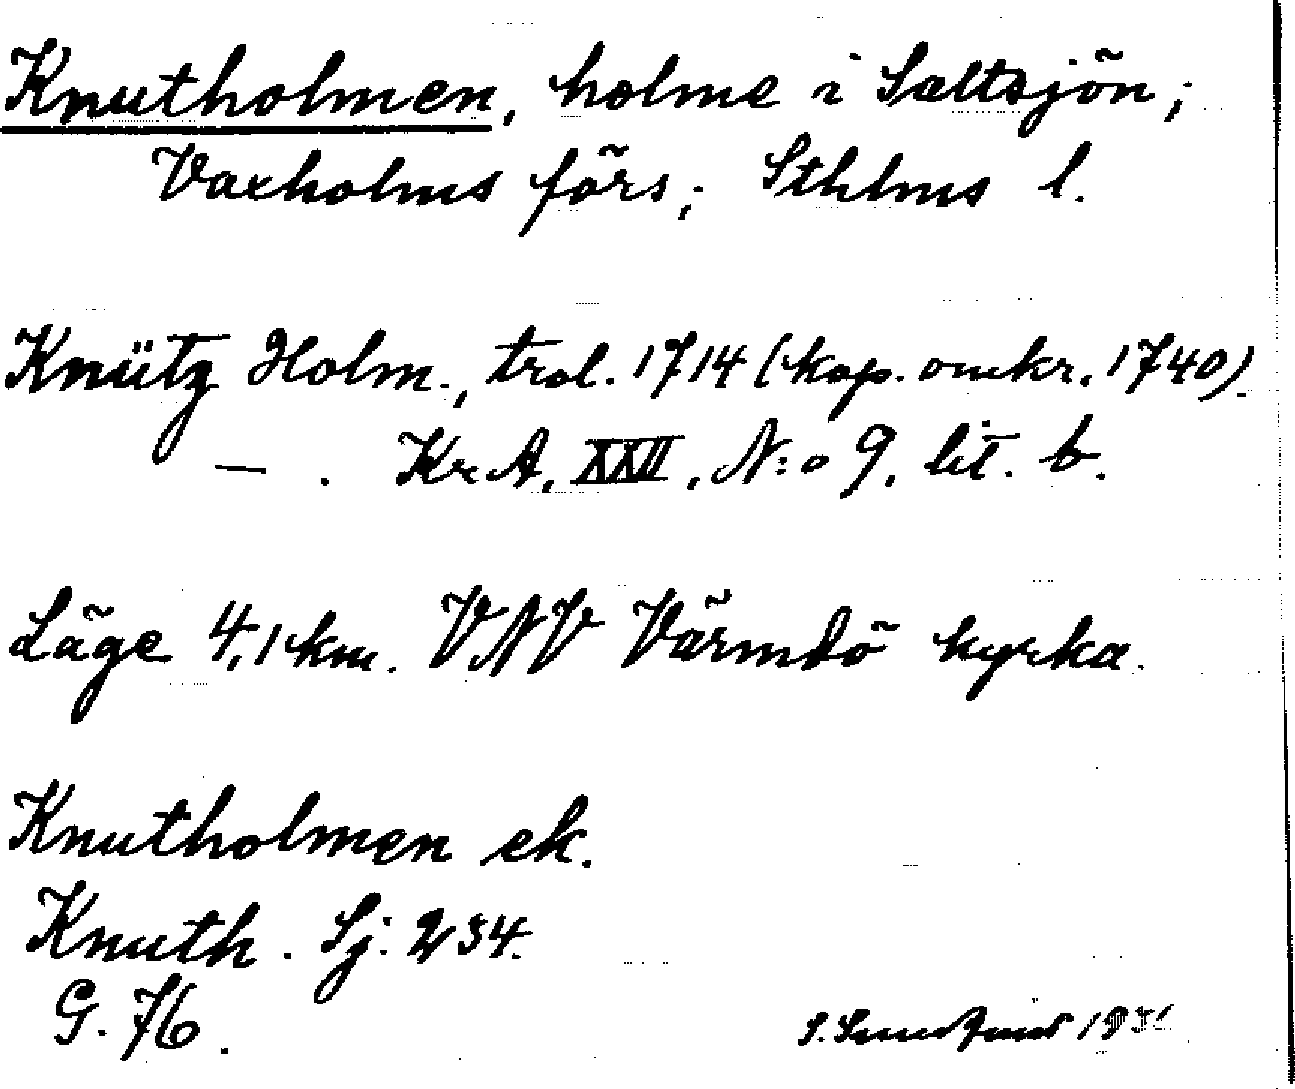 Knutholmen, holme i Saltsjön;
Vaxholms förs; Sthlms l.
Knütz Holm., trol. 1714 (kop. omkr. 1740).
— . KrA, XXII, N:o 9, lit. b.
Läge 4,1 km. VNV Värmdö kyrka.
Knutholmen ek.
Knuth. Sj. 234.
G. 76.
S. 1931